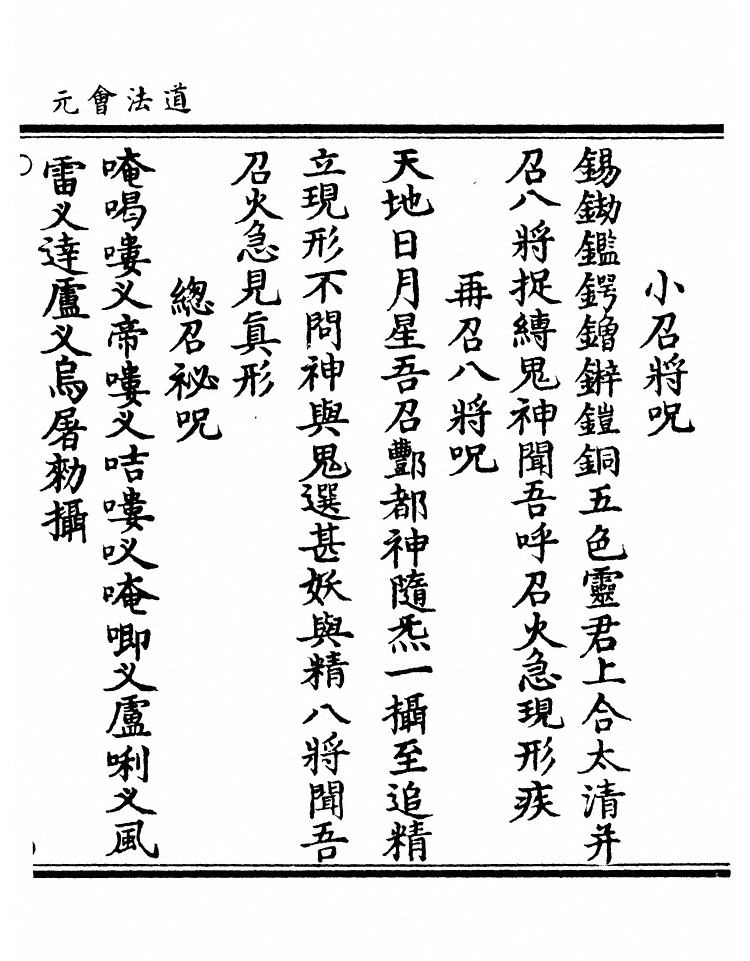 道法會元
小召將呪
錫鋤鑑鍔鐕鐴鎧銅五色靈君上合太清并
召八將捉縛鬼神聞吾呼召火急現形疾
再召八將呪
天地日月星吾召酆都神隨炁一攝至追精
立現形不問神與鬼選甚妖與精八將聞吾
召火急見眞形
總召祕呪
唵喝嘍义帝嘍义咭嘍㕛唵唧义廬唎义風
雷义達廬义烏屠勑攝